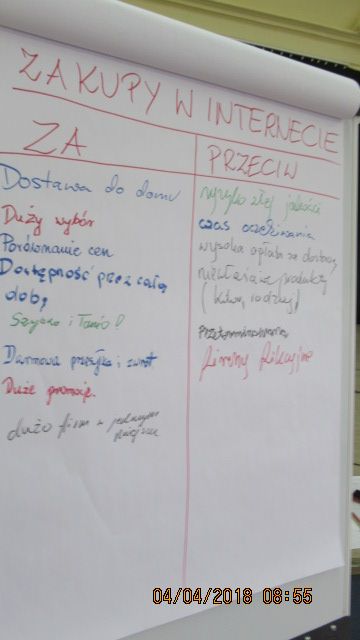 ZAKUPY W INTERNECIE
ZA
Dostawa do domu
Duży wybór
Porównanie cen
Dostępność przez całą
dobę
Szybko i Tanio!
Darmowa przesyłka i zwrot
Duże promocje.
dużo firm w jednym
miejscu
PRZECIW
ryzyko złej jakości
czas oczekiwania
wysoka opłata za dostawę
niewłaściwe produkty
(kolor, rodzaj)
Przeterminowane
firmy fikcyjne
04/04/2018 08:55